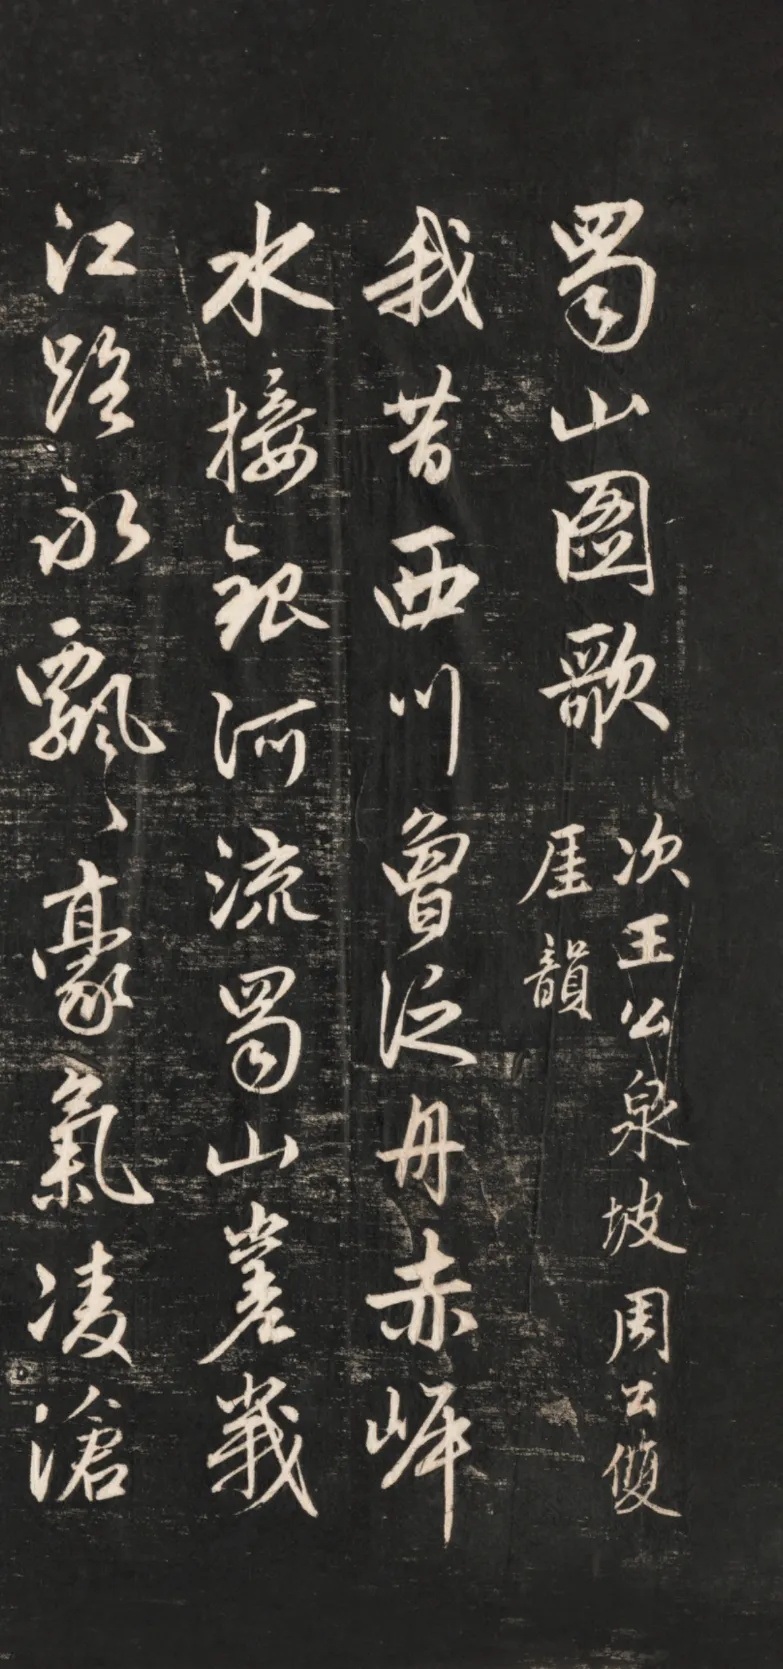 蜀山圖歌
次王公泉坡周公雙
厓韻
我昔西川曾泛舟赤岬
水接銀河流蜀山嵳峩
江路永飄〻豪氣凌滄